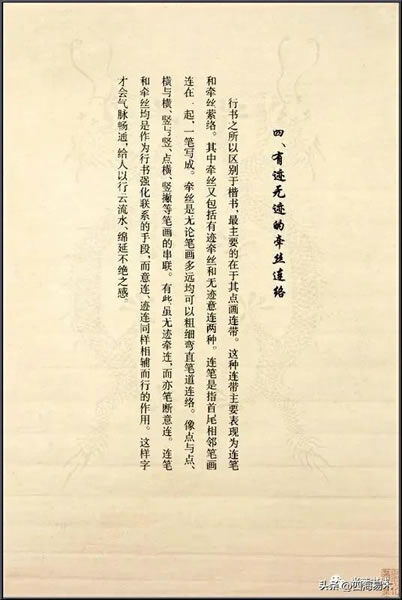 四、有迹无迹的牵丝连络
行书之所以区别于楷书,最主要的在于其点画连带。这种连带主要表现为连笔
和牵丝萦络。其中牵丝又包括有迹牵丝和无迹意连两种。连笔是指首尾相邻笔画
连在一起,一笔写成。牵丝是无论笔画多远均可以粗细弯直笔道连络。像点与点、
横与横、竖与竖、点横、竖撇等笔画的串联。有些虽无迹牵连,而亦笔断意连。连笔
和牵丝均是作为行书强化联系的手段,而意连、迹连同样相辅而行的作用。这样字
才会气脉畅通,给人以行云流水、绵延不绝之感。
头条 @四海易木